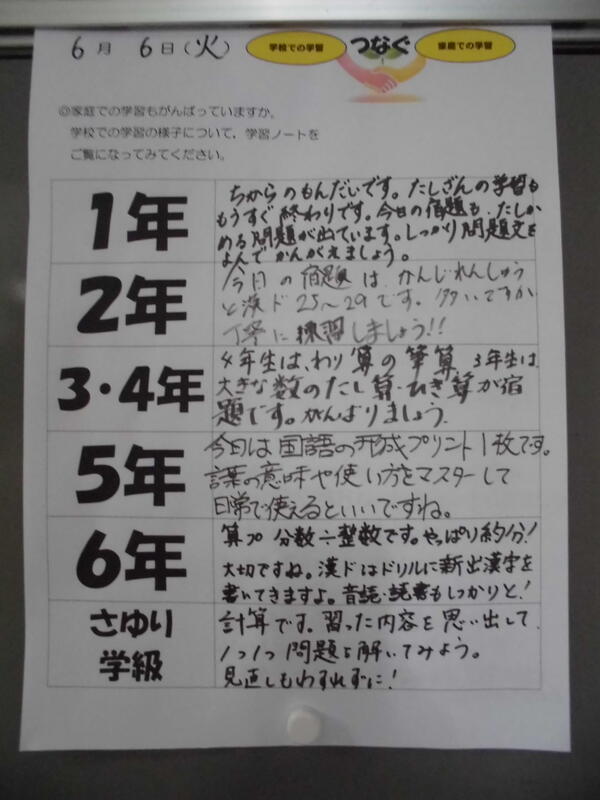 6月 6日(火)
学校での学習 つなぐ 家庭での学習
◎家庭での学習もがんばっていますか。
学校での学習の様子について、学習ノートを
ご覧になってみてください。
1年
ちからのもんだいです。たしざんの学習も
もうすぐ終わりです。今日の宿題も、たしか
める問題が出ています。しっかり問題文を
よんでかんがえましょう。
2年
今日の宿題は、かんじれんしゅう
と漢ド25〜29です。多いですが
丁寧に練習しましょう!!
3・4年
4年生は、わり算の筆算、3年生は、
大きな数のたし算・ひき算が宿
題です。がんばりましょう。
5年
今日は国語の形成プリント1枚です。
言葉の意味や使い方をマスターして
日常で使えるといいですね。
6年
算プ 分数÷整数です。やっぱり約分!
大切ですね。漢ドはドリルに新出漢字を
書いてきますよ。音読・読書もしっかりと!
さゆり
学級
計算です。習った内容を思い出して、
1つ1つ問題を解いてみよう。
見直しもわすれずに!